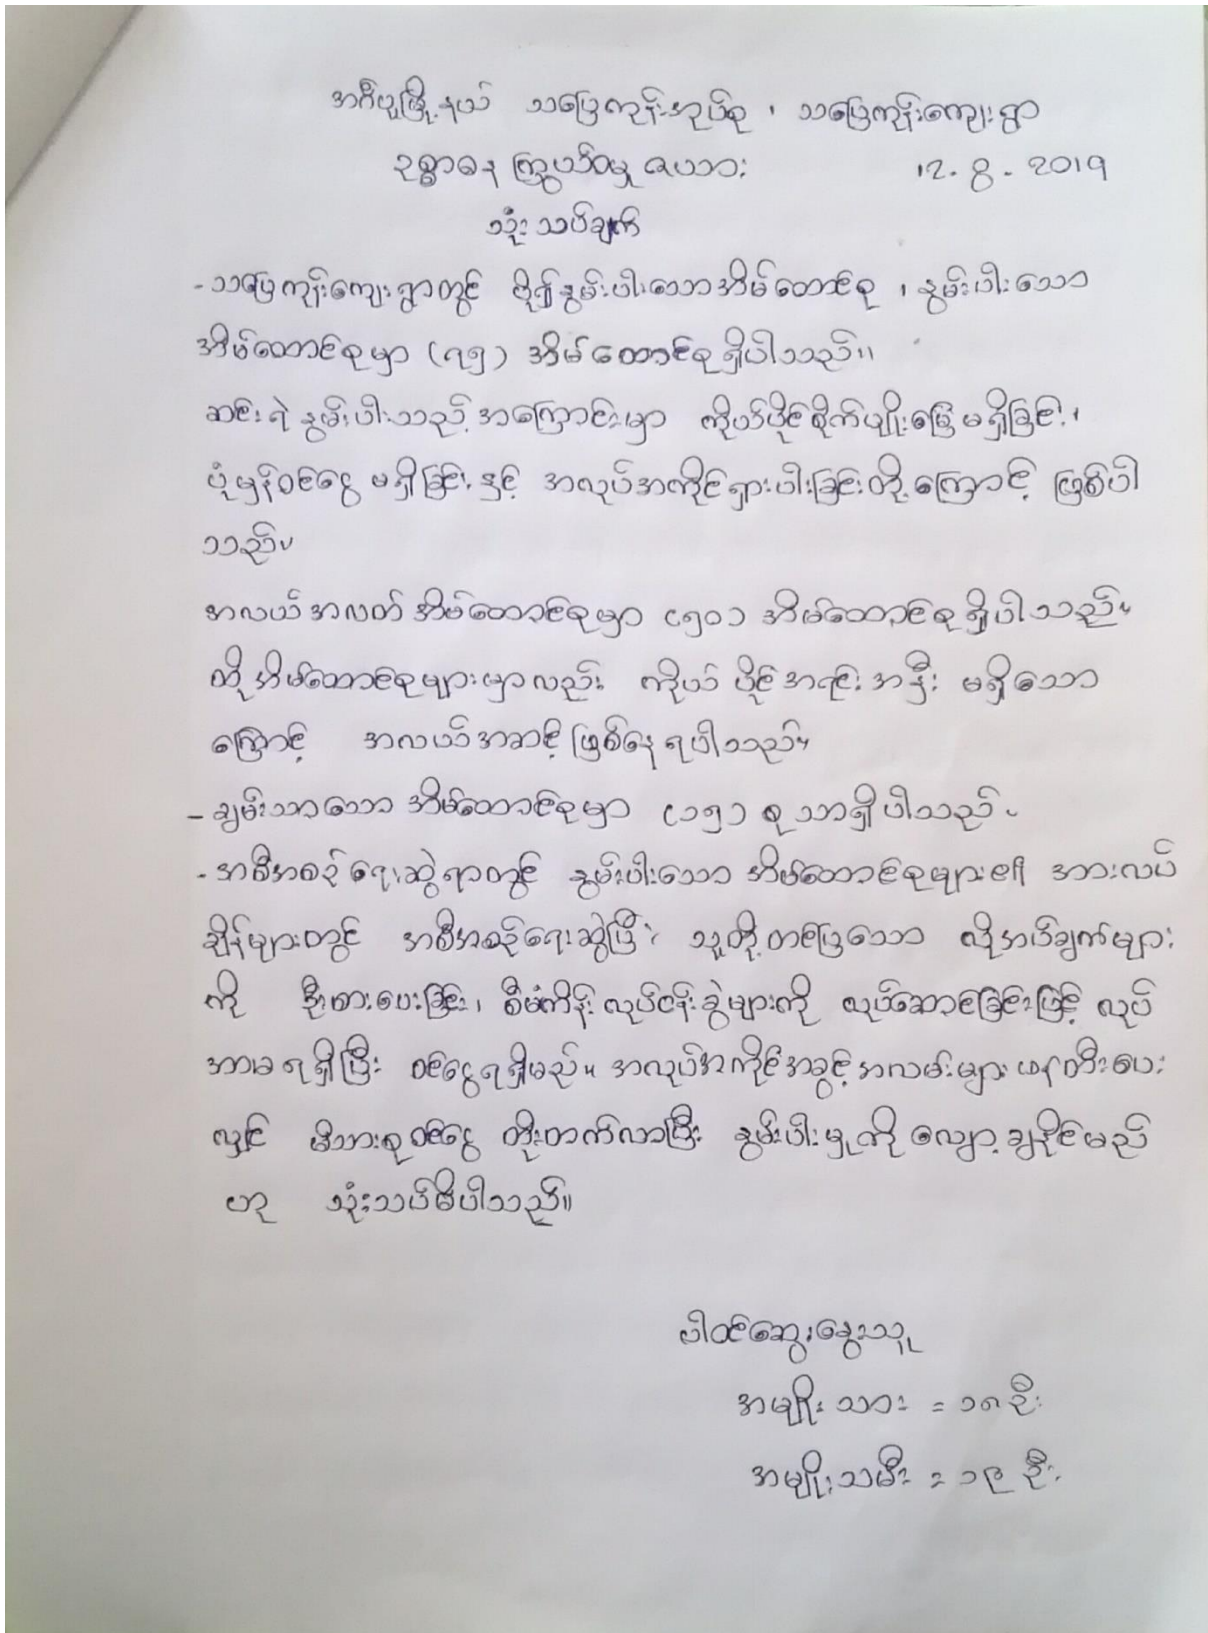 အင်္ဂပူမြို့နယ် သပြေကုန်းအုပ်စု ၊ သပြေကုန်းကျေးရွာ
ဥစ္စာဓန ကြွယ်ဝမှု ဇယား 12.8.2019
သုံးသပ်ချက်
- သပြေကုန်းကျေးရွာတွင် ပို၍နွမ်းပါးသောအိမ်ထောင်စု ၊ နွမ်းပါးသော
အိမ်ထောင်စုမှာ (၇၅) အိမ်ထောင်စုရှိပါသည်။
ဆင်းရဲနွမ်းပါးသည့်အကြောင်းမှာ ကိုယ်ပိုင်စိုက်ပျိုးမြေမရှိခြင်း၊
ပုံမှန်ဝင်ငွေ မရှိခြင်း နှင့် အလုပ်အကိုင်ရှားပါးခြင်းတို့ကြောင့် ဖြစ်ပါ
သည်။
အလယ်အလတ်အိမ်ထောင်စုမှာ (၅၀) အိမ်ထောင်စုရှိပါသည်။
ထို့အိမ်ထောင်စုများမှာလည်း ကိုယ်ပိုင်အရင်းအနှီး မရှိသော
ကြောင့် အလယ်အဆင့်ဖြစ်နေရပါသည်။
- ချမ်းသာသောအိမ်ထောင်စုမှာ (၁၅) စုသာရှိပါသည်။
- အစီအစဉ်ရေးဆွဲရာတွင် နွမ်းပါးသော အိမ်ထောင်စုများ၏ အားလပ်
ချိန်များတွင် အစီအစဉ်ရေးဆွဲပြီး သူတို့တင်ပြသော လိုအပ်ချက်များ
ကို ဦးစားပေးခြင်း၊ စီမံကိန်းလုပ်ငန်းခွဲများကို လုပ်ဆောင်ခြင်းဖြင့် လုပ်
အားခရရှိပြီး ဝင်ငွေရရှိမည်။ အလုပ်အကိုင်အခွင့်အလမ်းများဖန်တီးပေး
လျှင် မိသားစုဝင်ငွေ တိုးတက်လာပြီး နွမ်းပါးမှုကို လျော့ချနိုင်မည်
ဟု သုံးသပ်မိပါသည်။
ပါဝင်ဆွေးနွေးသူ
အမျိုးသား = ၁၈ဦး
အမျိုးသမီး = ၁၉ဦး